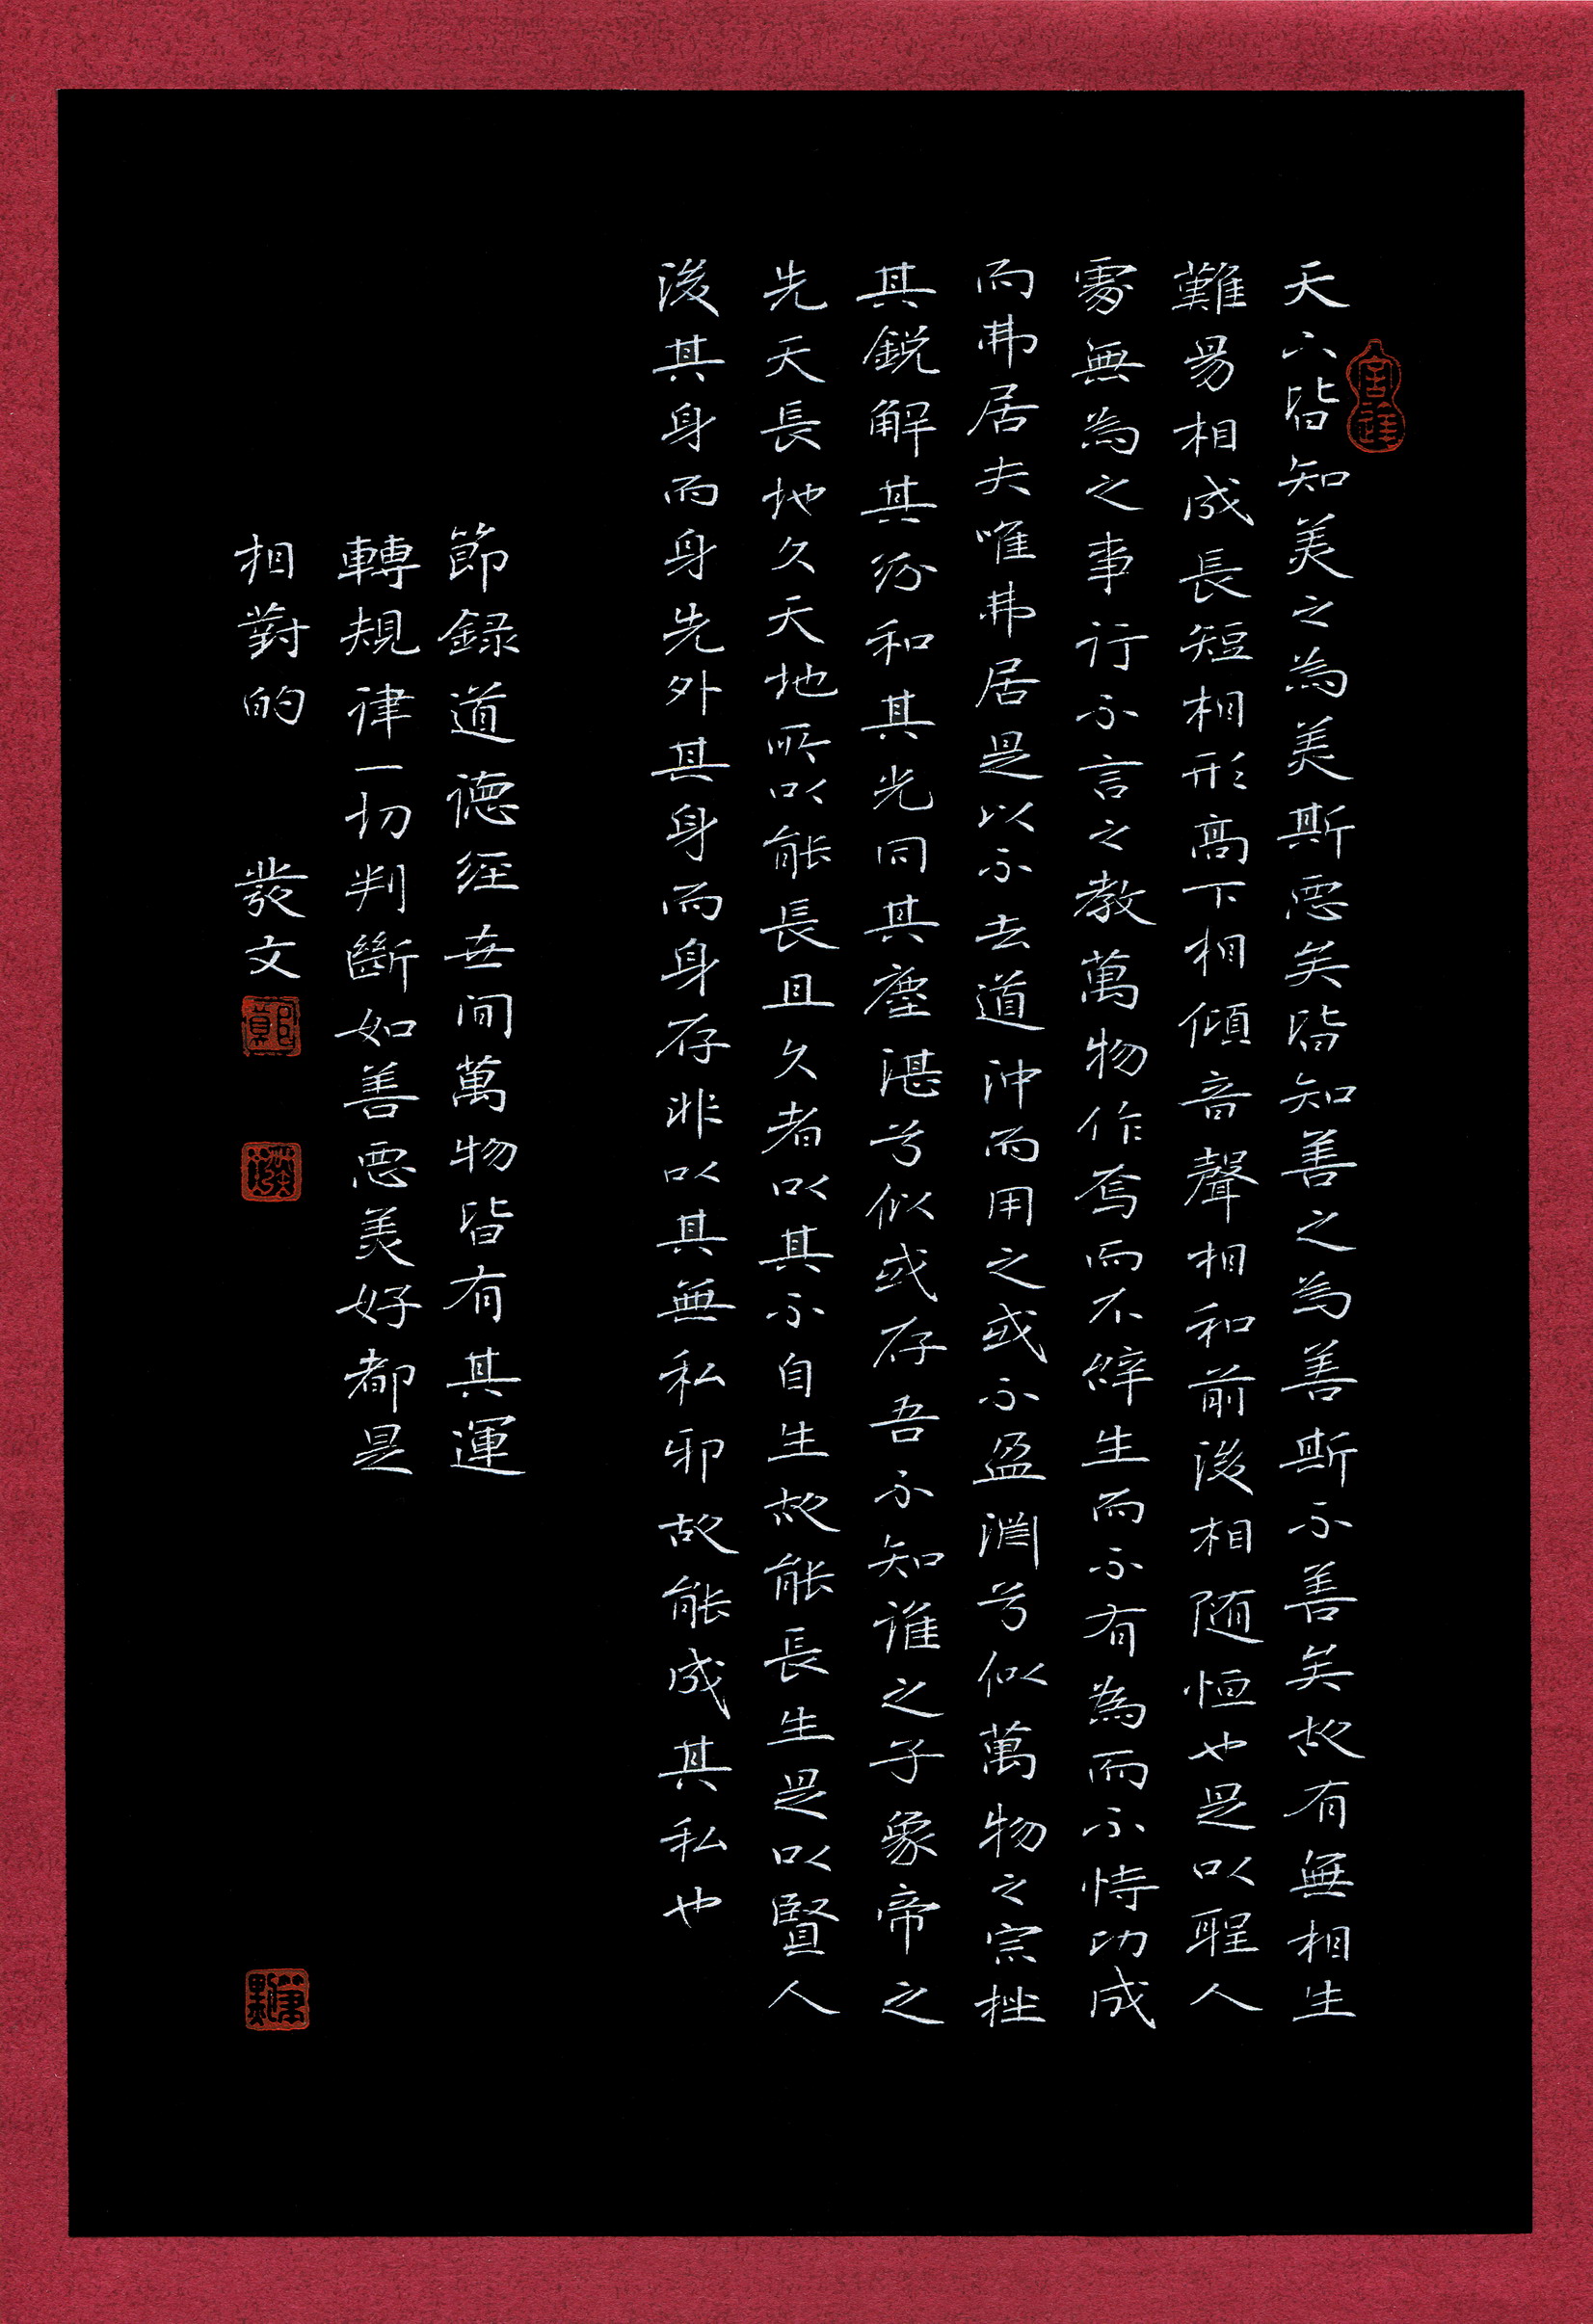 天下皆知美之為美斯惡矣皆知善之為善斯不善矣故有無相生
難易相成長短相形高下相傾音聲相和前後相随恒也是以聖人
處無為之事行不言之教萬物作焉而不辭生而不有為而不恃功成
而弗居夫唯弗居是以不去道沖而用之或不盈淵兮似萬物之宗挫
其銳解其紛和其光同其塵湛兮似或存吾不知誰之子象帝之
先天長地久天地所以能長且久者以其不自生故能長生是以賢人
後其身而身先外其身而身存非以其無私邪故能成其私也
節録道德經世間萬物皆有其運
轉規律一切判斷如善惡美好都是
相對的 發文